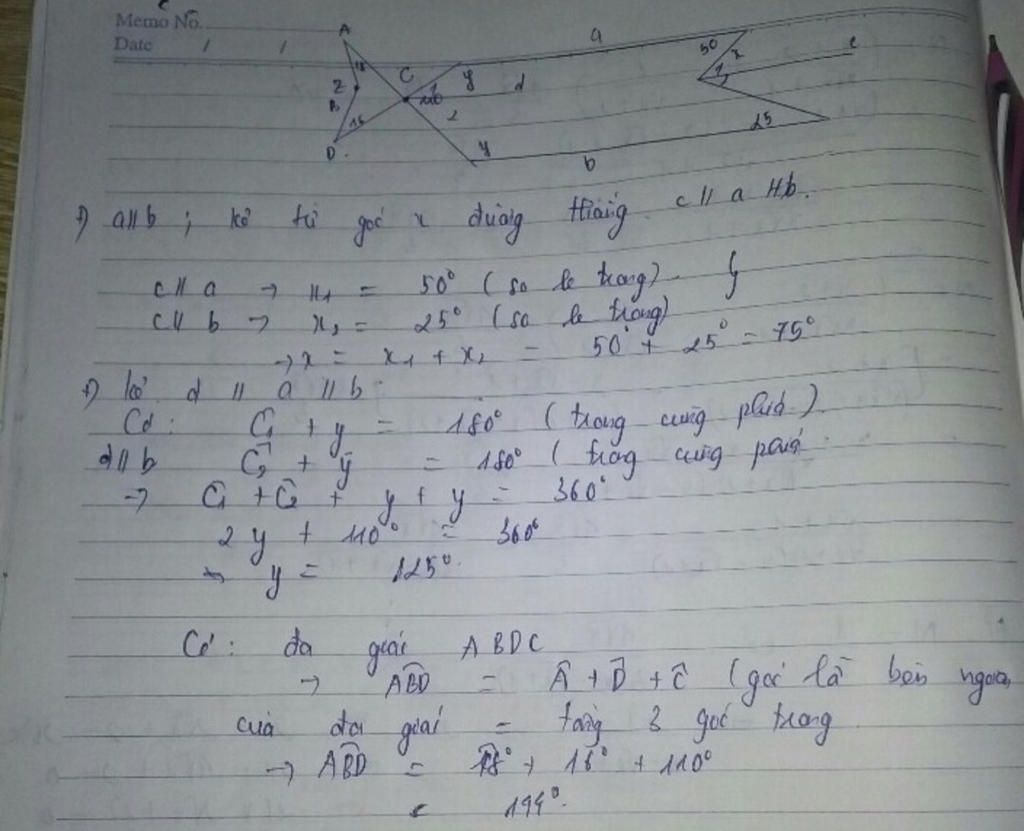 Memo No.
Date / /
A
a
50
x
c
18
C
Z
1
y
d
1
2
B
110
2
16
25
D.
y
b
1) a//b ; kẻ từ góc x đường thẳng c // a // b.
c // a → x1 = 50° (so le trong)
c // b → x2 = 25° (so le trong)
→ x = x1 + x2 = 50° + 25° = 75°
+) kẻ d // a // b
Có: Ĉ1 + y = 180° (trong cùng phía)
d // b Ĉ2 + y = 180° (trong cùng phía
→ Ĉ1 + Ĉ2 + y + y = 360°
2y + 110° = 360°
→ y = 125°.
Có: đa giác ABDC
→ ABD = Â + D̂ + Ĉ (góc lõ bên ngoài
của đa giác = tổng 3 góc trong
→ ABD = 18° + 16° + 110°
= 144°.